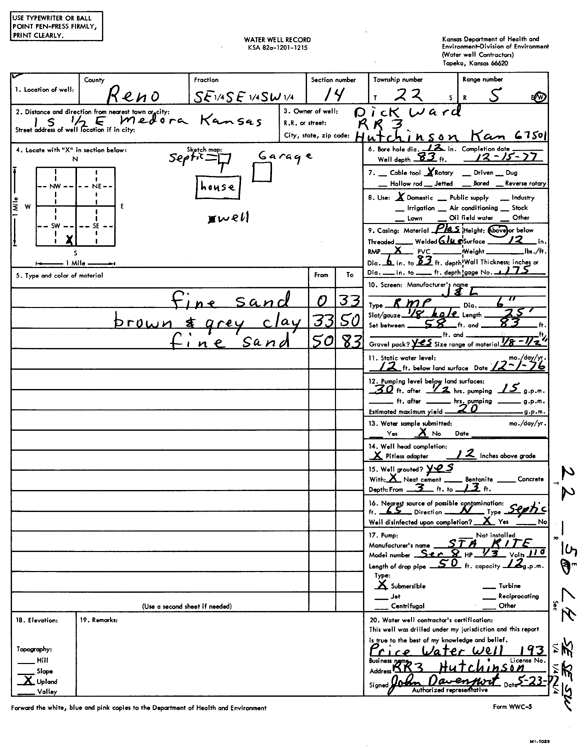 USE TYPEWRITER OR BALL
POINT PEN-PRESS FIRMLY,
PRINT CLEARLY.
WATER WELL RECORD
KSA 82a-1201-1215
Kansas Department of Health and
Environment-Division of Environment
(Water well Contractors)
Topeka, Kansas 66620
1. Location of well: County Reno Fraction SE 1/4 SE 1/4 SW 1/4 Section number 14 Township number T 22 S Range number R 5 E/W
2. Distance and direction from nearest town or city: 1 S 1/2 E Medora Kansas
Street address of well location if in city:
3. Owner of well: Dick Ward
R.R. or street: RR 3
City, state, zip code: Hutchinson Kan 67501
4. Locate with "X" in section below:
N
NW NE
W E
SW SE
X
S
1 Mile
1 Mile
Sketch map:
Septic
Garage
house
x well
5. Type and color of material From To
fine sand 0 33
brown & grey clay 33 50
fine sand 50 83
(Use a second sheet if needed)
6. Bore hole dia. 12 in. Completion date
Well depth 83 ft. 12-15-77
7. Cable tool X Rotary Driven Dug
Hollow rod Jetted Bored Reverse rotary
8. Use: X Domestic Public supply Industry
Irrigation Air conditioning Stock
Lawn Oil field water Other
9. Casing: Material Plas Height: Above or below
Threaded Welded Glue Surface 12 in.
RMP X PVC Weight lbs./ft.
Dia. 6 in. to 83 ft. depth Wall Thickness: inches or
Dia. in. to ft. depth gage No. .175
10. Screen: Manufacturer's name
J & L
Type RMP Dia. 6"
Slot/gauze 1/8 hole Length 25'
Set between 58 ft. and 83 ft.
ft. and ft.
Gravel pack? yes Size range of material 1/8-1/2"
11. Static water level: mo./day/yr.
12 ft. below land surface Date 12-1-76
12. Pumping level below land surfaces:
30 ft. after 1/2 hrs. pumping 15 g.p.m.
ft. after hrs. pumping g.p.m.
Estimated maximum yield 20 g.p.m.
13. Water sample submitted: mo./day/yr.
Yes X No Date
14. Well head completion:
X Pitless adapter 12 Inches above grade
15. Well grouted? yes
With: X Neat cement Bentonite Concrete
Depth: From 3 ft. to 13 ft.
16. Nearest source of possible contamination:
ft. 65 Direction N Type Septic
Well disinfected upon completion? X Yes No
17. Pump: Not installed
Manufacturer's name STA RITE
Model number Ser 8 HP 1/3 Volts 110
Length of drop pipe 50 ft. capacity 12 g.p.m.
Type:
X Submersible Turbine
Jet Reciprocating
Centrifugal Other
18. Elevation:
Topography:
Hill
Slope
X Upland
Valley
19. Remarks:
20. Water well contractor's certification:
This well was drilled under my jurisdiction and this report
is true to the best of my knowledge and belief.
Price Water Well 193
Business name License No.
Address RR3 Hutchinson
Signed John Davenport Date 5-23-77
Authorized representative
Forward the white, blue and pink copies to the Department of Health and Environment
Form WWC-5
T 22
R 5
E
Sec 14
1/4 1/4 1/4 SE SE SW